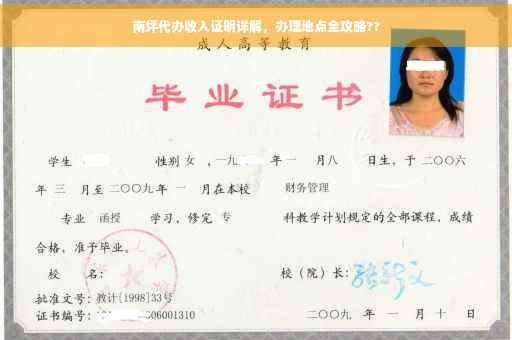 南坪代办收入证明详解，办理地点全攻略??
成人高等教育
毕业证书
学生 性别 女 ，一九 年 一 月八 日生，于 二〇〇六
年 三 月至 二〇〇九 年 一 月在本校 财务管理
专业 函授 学习，修完 专 科教学计划规定的全部课程，成绩
合格，准予毕业。
校 名： 校（院）长：
批准文号：教计[1998]33号
证书编号： 06001310 二〇〇九 年 一 月 十 日